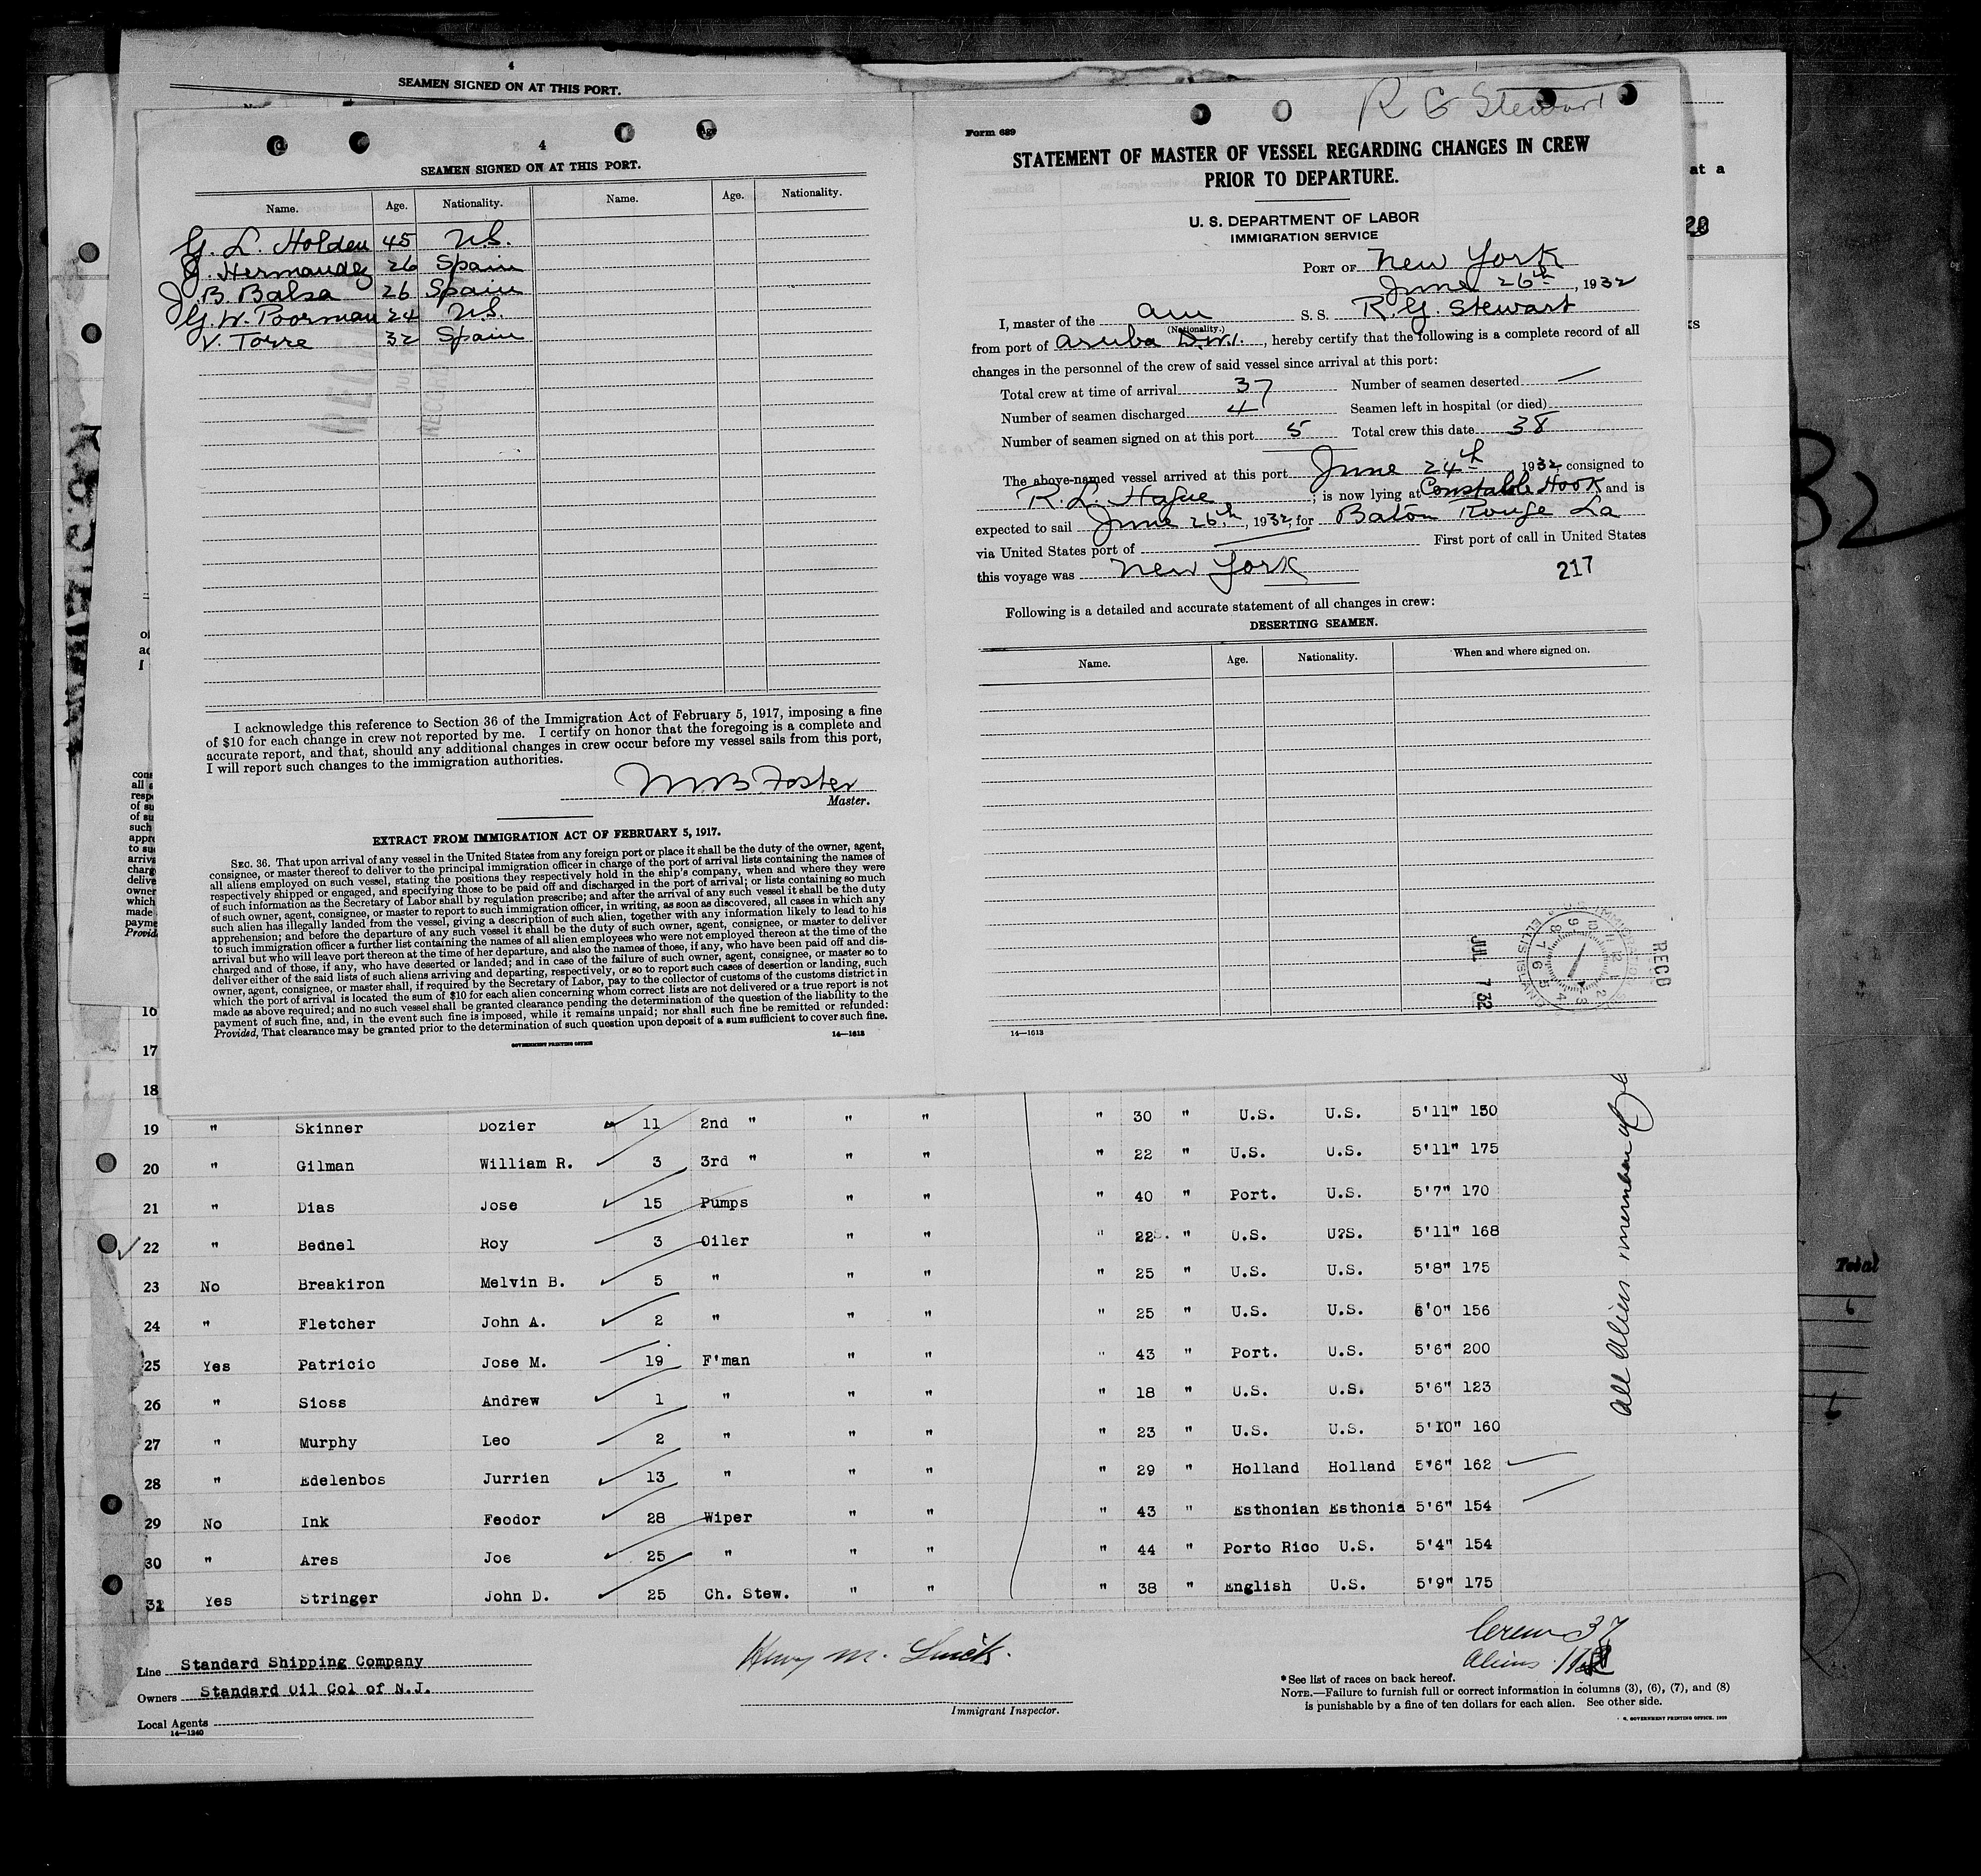 4
SEAMEN SIGNED ON AT THIS PORT.
4
SEAMEN SIGNED ON AT THIS PORT.
Name. Age. Nationality. Name. Age. Nationality.
G. L. Holden 45 U.S.
J. Hermandez 26 Spain
J. B. Balsa 26 Spain
G. W. Poorman 24 U.S.
V. Torre 32 Spain
I acknowledge this reference to Section 36 of the Immigration Act of February 5, 1917, imposing a fine
of $10 for each change in crew not reported by me. I certify on honor that the foregoing is a complete and
accurate report, and that, should any additional changes in crew occur before my vessel sails from this port,
I will report such changes to the immigration authorities.
M. B. Foster
Master.
EXTRACT FROM IMMIGRATION ACT OF FEBRUARY 5, 1917.
SEC. 36. That upon arrival of any vessel in the United States from any foreign port or place it shall be the duty of the owner, agent,
consignee, or master thereof to deliver to the principal immigration officer in charge of the port of arrival lists containing the names of
all aliens employed on such vessel, stating the positions they respectively hold in the ship's company, when and where they were
respectively shipped or engaged, and specifying those to be paid off and discharged in the port of arrival; or lists containing so much
of such information as the Secretary of Labor shall by regulation prescribe; and after the arrival of any such vessel it shall be the duty
of such owner, agent, consignee, or master to report to such immigration officer, in writing, as soon as discovered, all cases in which any
such alien has illegally landed from the vessel, giving a description of such alien, together with any information likely to lead to his
apprehension; and before the departure of any such vessel it shall be the duty of such owner, agent, consignee, or master to deliver
to such immigration officer a further list containing the names of all alien employees who were not employed thereon at the time of the
arrival but who will leave port thereon at the time of her departure, and also the names of those, if any, who have been paid off and dis-
charged and of those, if any, who have deserted or landed; and in case of the failure of such owner, agent, consignee, or master so to
deliver either of the said lists of such aliens arriving and departing, respectively, or so to report such cases of desertion or landing, such
owner, agent, consignee, or master shall, if required by the Secretary of Labor, pay to the collector of customs of the customs district in
which the port of arrival is located the sum of $10 for each alien concerning whom correct lists are not delivered or a true report is not
made as above required; and no such vessel shall be granted clearance pending the determination of the question of the liability to the
payment of such fine, and, in the event such fine is imposed, while it remains unpaid; nor shall such fine be remitted or refunded:
Provided, That clearance may be granted prior to the determination of such question upon deposit of a sum sufficient to cover such fine.
14—1613
GOVERNMENT PRINTING OFFICE
R G Stewart
Form 689
STATEMENT OF MASTER OF VESSEL REGARDING CHANGES IN CREW
PRIOR TO DEPARTURE.
U. S. DEPARTMENT OF LABOR
IMMIGRATION SERVICE
PORT OF New York
June 26th, 1932
I, master of the Am S. S. R. G. Stewart
(Nationality.)
from port of Aruba D.W.I., hereby certify that the following is a complete record of all
changes in the personnel of the crew of said vessel since arrival at this port:
Total crew at time of arrival 37 Number of seamen deserted —
Number of seamen discharged 4 Seamen left in hospital (or died)
Number of seamen signed on at this port 5 Total crew this date 38
The above-named vessel arrived at this port June 24th 1932, consigned to
R. L. Hague; is now lying at Constable Hook and is
expected to sail June 26th, 1932, for Baton Rouge La
via United States port of First port of call in United States
this voyage was New York
217
Following is a detailed and accurate statement of all changes in crew:
DESERTING SEAMEN.
Name. Age. Nationality. When and where signed on.
RECD
JUL 7 32
14—1613
16
17
18
19 " Skinner Dozier 11 2nd " " " " 30 " U.S. U.S. 5'11" 150
20 " Gilman William R. 3 3rd " " " " 22 " U.S. U.S. 5'11" 175
21 " Dias Jose 15 Pumps " " " 40 " Port. U.S. 5'7" 170
22 " Bednel Roy 3 Oiler " " " 22 " U.S. U?S. 5'11" 168
23 No Breakiron Melvin B. 5 " " " " 25 " U.S. U.S. 5'8" 175
24 " Fletcher John A. 2 " " " " 25 " U.S. U.S. 6'0" 156
25 Yes Patricio Jose M. 19 F'man " " " 43 " Port. U.S. 5'6" 200
26 " Sioss Andrew 1 " " " " 18 " U.S. U.S. 5'6" 123
27 " Murphy Leo 2 " " " " 23 " U.S. U.S. 5'10" 160
28 " Edelenbos Jurrien 13 " " " " 29 " Holland Holland 5'6" 162
29 No Ink Feodor 28 Wiper " " " 43 " Esthonian Esthonia 5'6" 154
30 " Ares Joe 25 " " " " 44 " Porto Rico U.S. 5'4" 154
31 Yes Stringer John D. 25 Ch. Stew. " " " 38 " English U.S. 5'9" 175
All Aliens
Line Standard Shipping Company
Owners Standard Oil Col of N.J.
Local Agents
14—1240
Immigrant Inspector.
Crew 37
Aliens
*See list of races on back hereof.
NOTE.—Failure to furnish full or correct information in columns (3), (6), (7), and (8)
is punishable by a fine of ten dollars for each alien. See other side.
Total